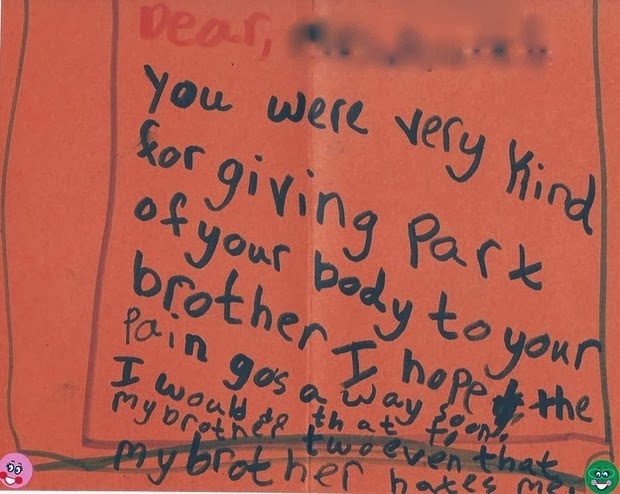 Dear,
You were very kind
for giving Part
of your body to your
brother I hope the
Pain gos a way soon.
I would do that for
my brother two even that
my brother hates me.